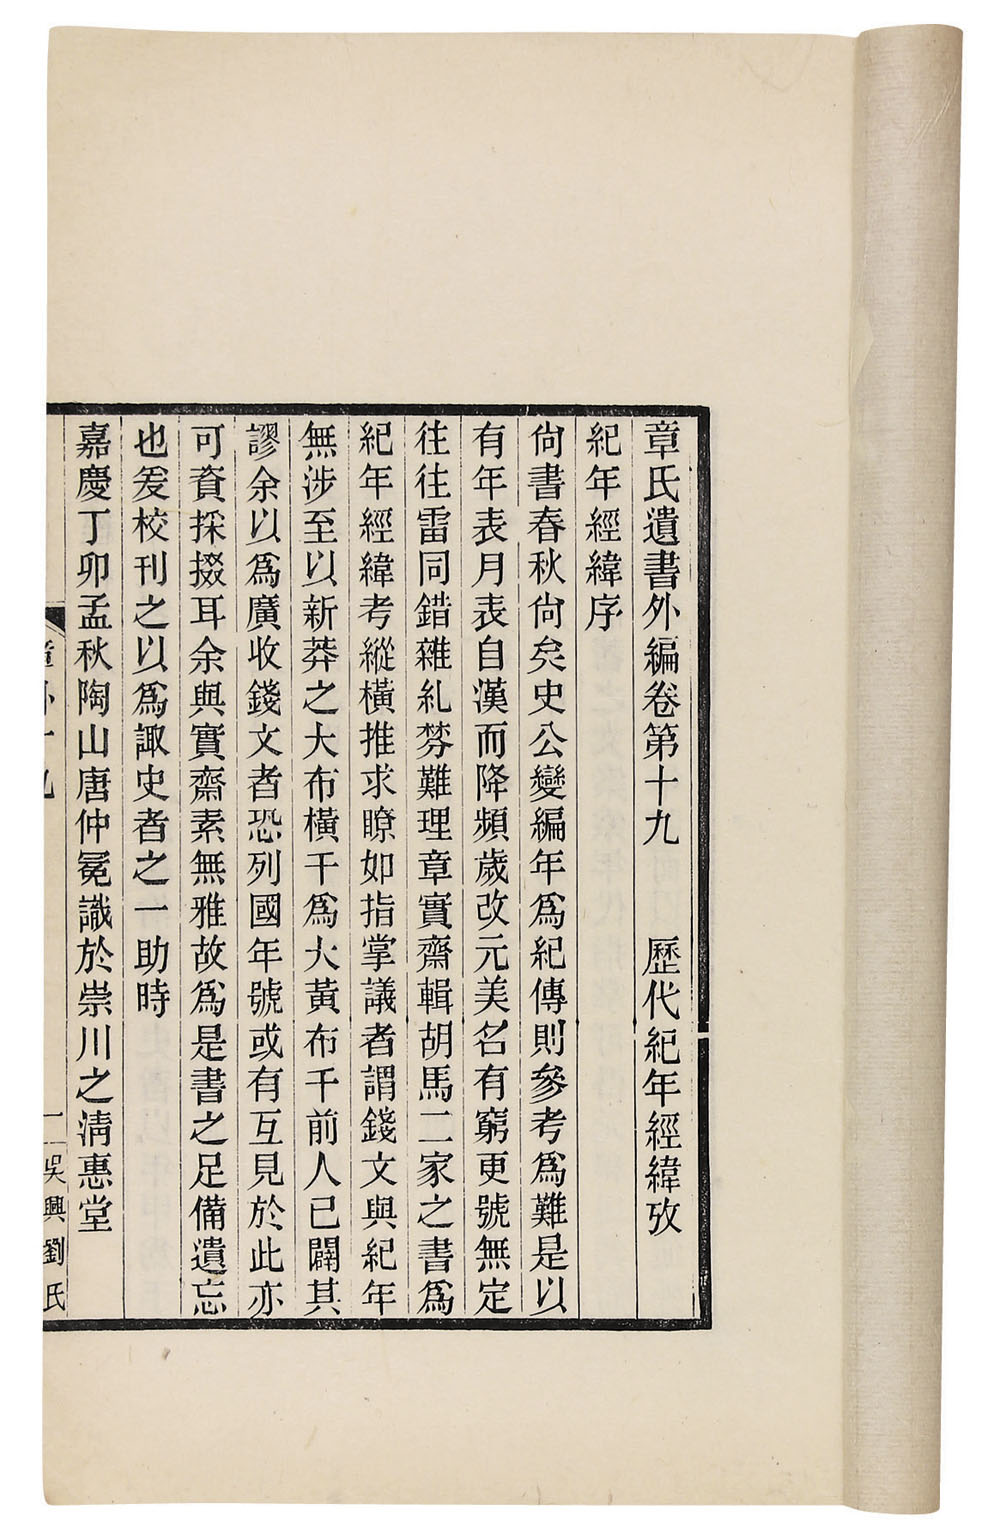 章氏遺書外編卷第十九　歷代紀年經緯攷
紀年經緯序
尙書春秋尙矣史公變編年爲紀傳則參考爲難是以
有年表月表自漢而降頻歲改元美名有窮更號無定
往往雷同錯雜糺棼難理章實齋輯胡馬二家之書爲
紀年經緯考縱橫推求瞭如指掌議者謂錢文與紀年
無涉至以新莽之大布橫千爲大黃布千前人已闢其
謬余以爲廣收錢文者恐列國年號或有互見於此亦
可資採掇耳余與實齋素無雅故爲是書之足備遺忘
也爰校刊之以爲諏史者之一助時
嘉慶丁卯孟秋陶山唐仲冕識於崇川之淸惠堂
章外十九　一　吳興劉氏